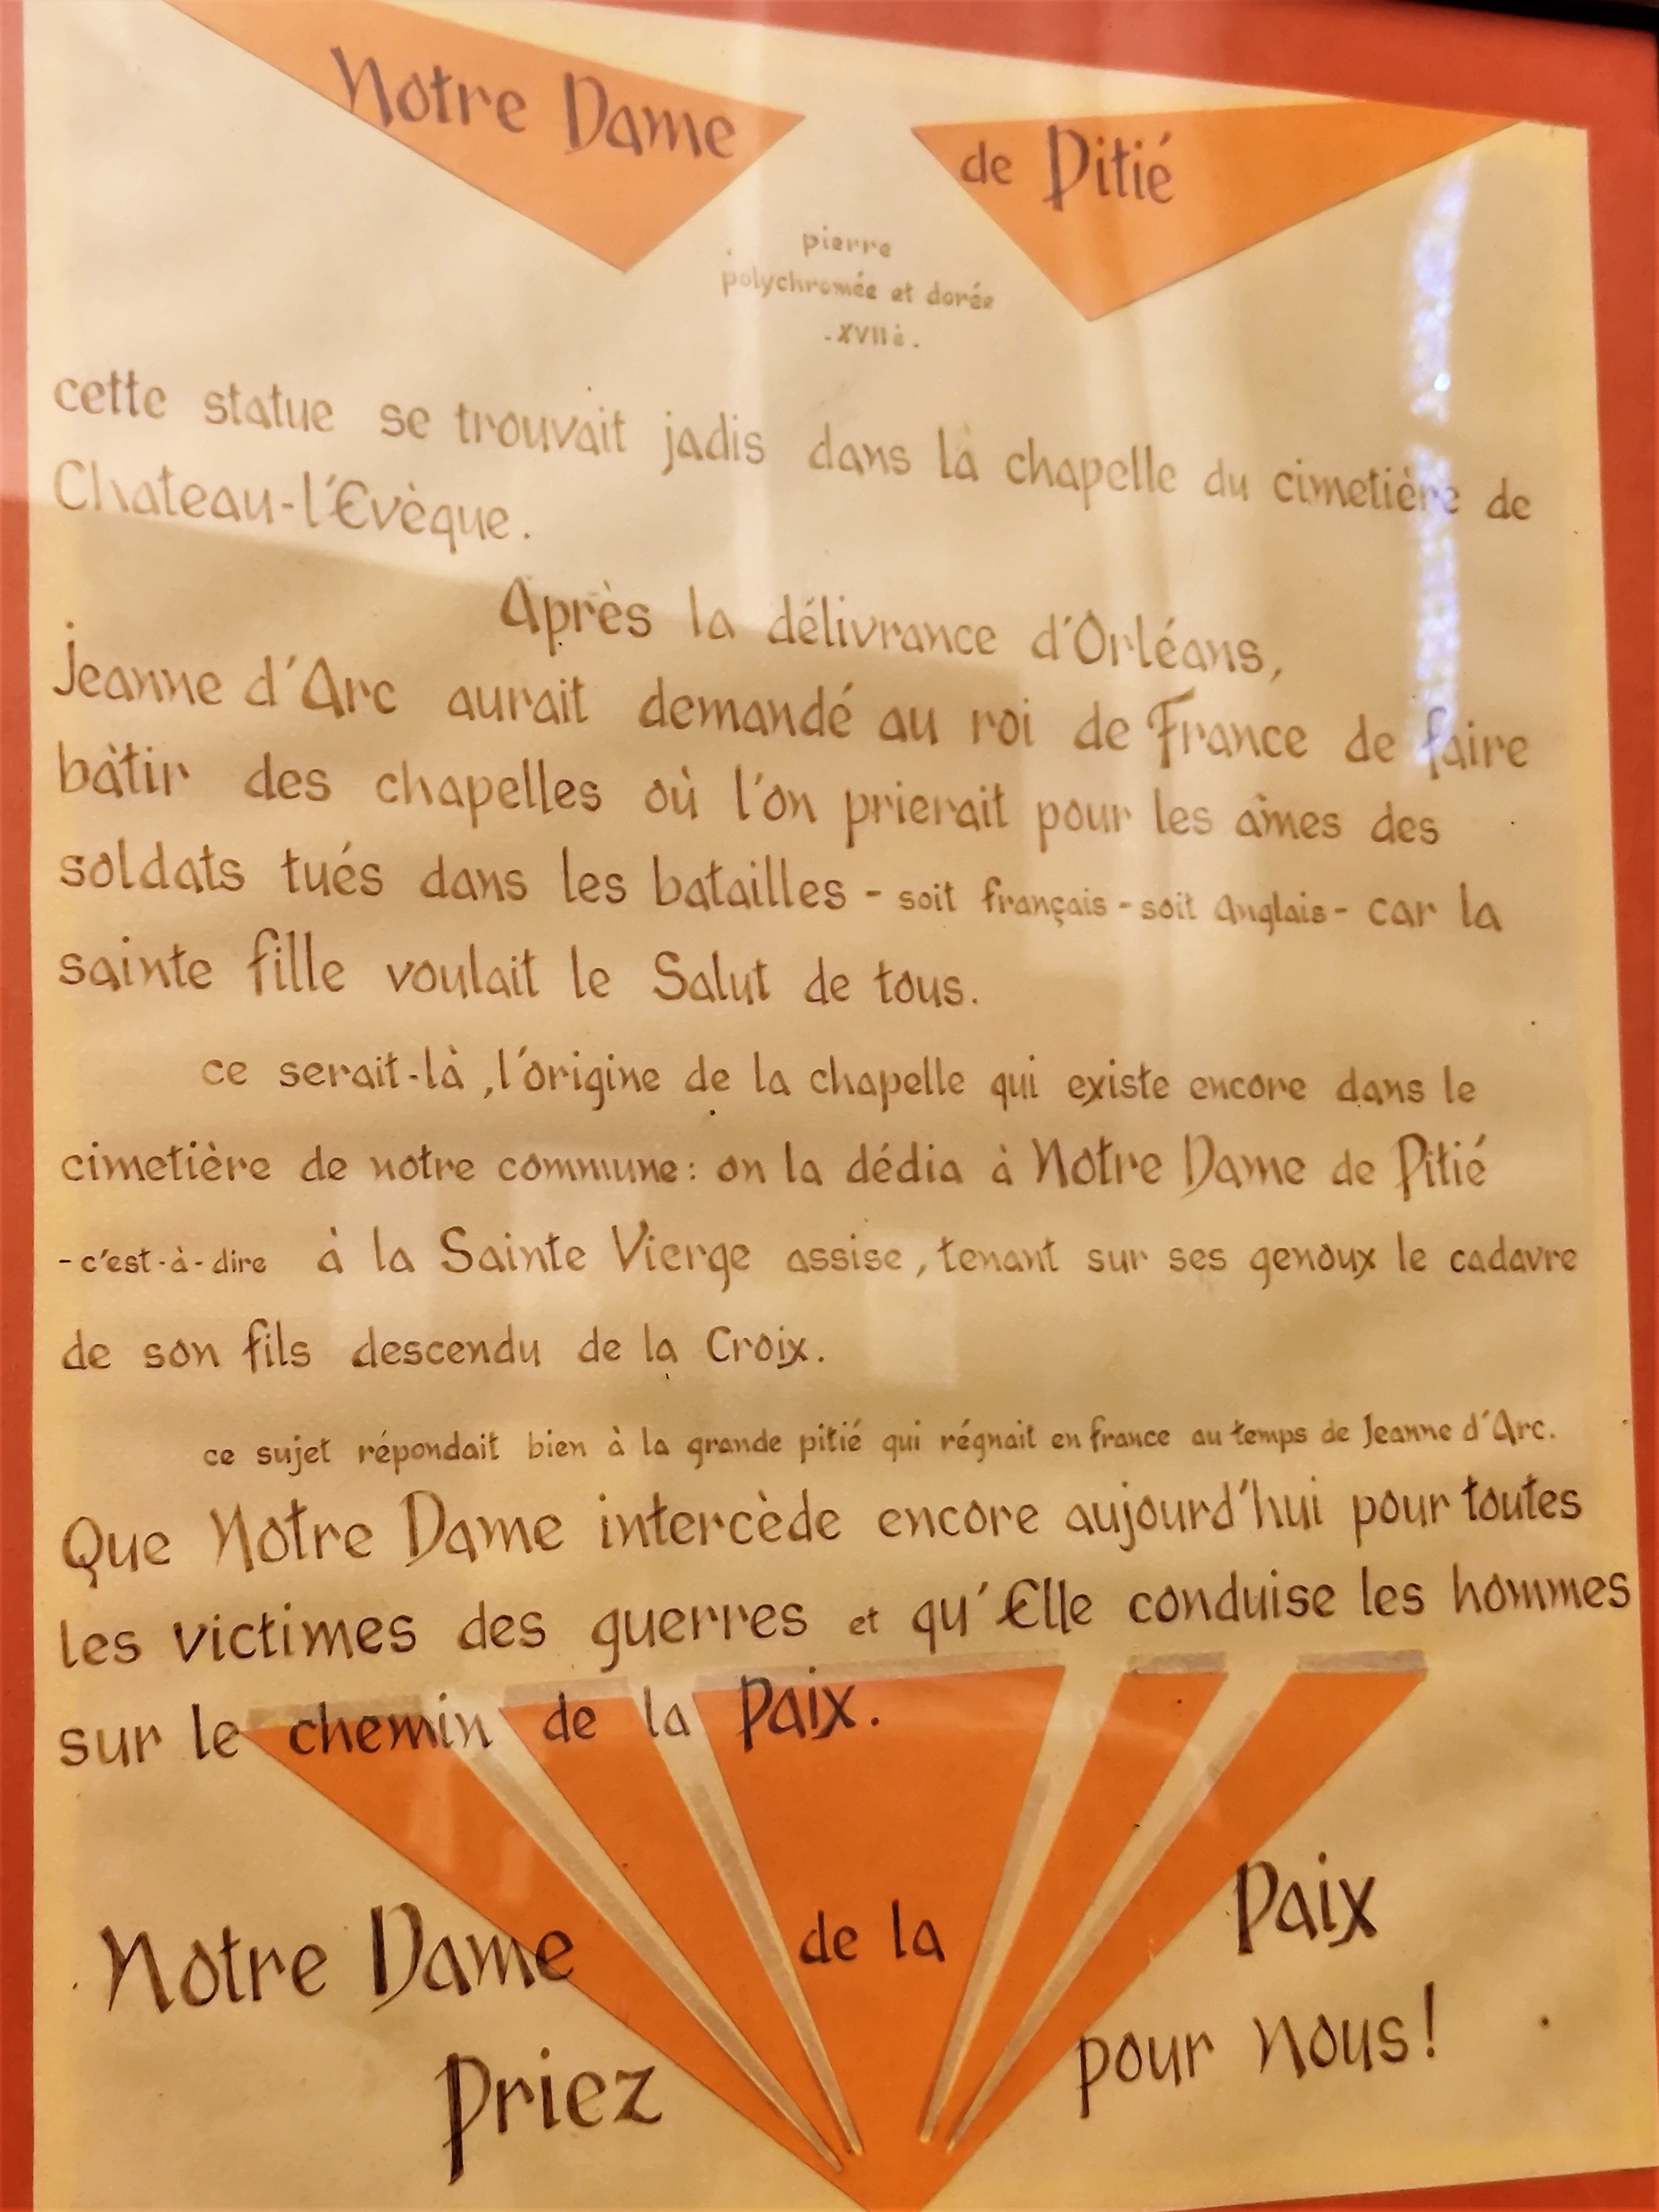 Notre Dame de Pitié
pierre
polychromée et dorée
-XVIIè.
cette statue se trouvait jadis dans la chapelle du cimetière de
Chateau-l'Evèque.
Après la délivrance d'Orléans,
Jeanne d'Arc aurait demandé au roi de France de faire
bàtir des chapelles où l'on prierait pour les âmes des
soldats tués dans les batailles - soit français - soit Anglais - car la
sainte fille voulait le Salut de tous.
ce serait-là, l'origine de la chapelle qui existe encore dans le
cimetière de notre commune: on la dédia à Notre Dame de Pitié
- c'est-à-dire à la Sainte Vierge assise, tenant sur ses genoux le cadavre
de son fils descendu de la Croix.
ce sujet répondait bien à la grande pitié qui régnait en france au temps de Jeanne d'Arc.
Que Notre Dame intercède encore aujourd'hui pour toutes
les victimes des guerres et qu'Elle conduise les hommes
sur le chemin de la Paix.
Notre Dame de la Paix
Priez pour nous!